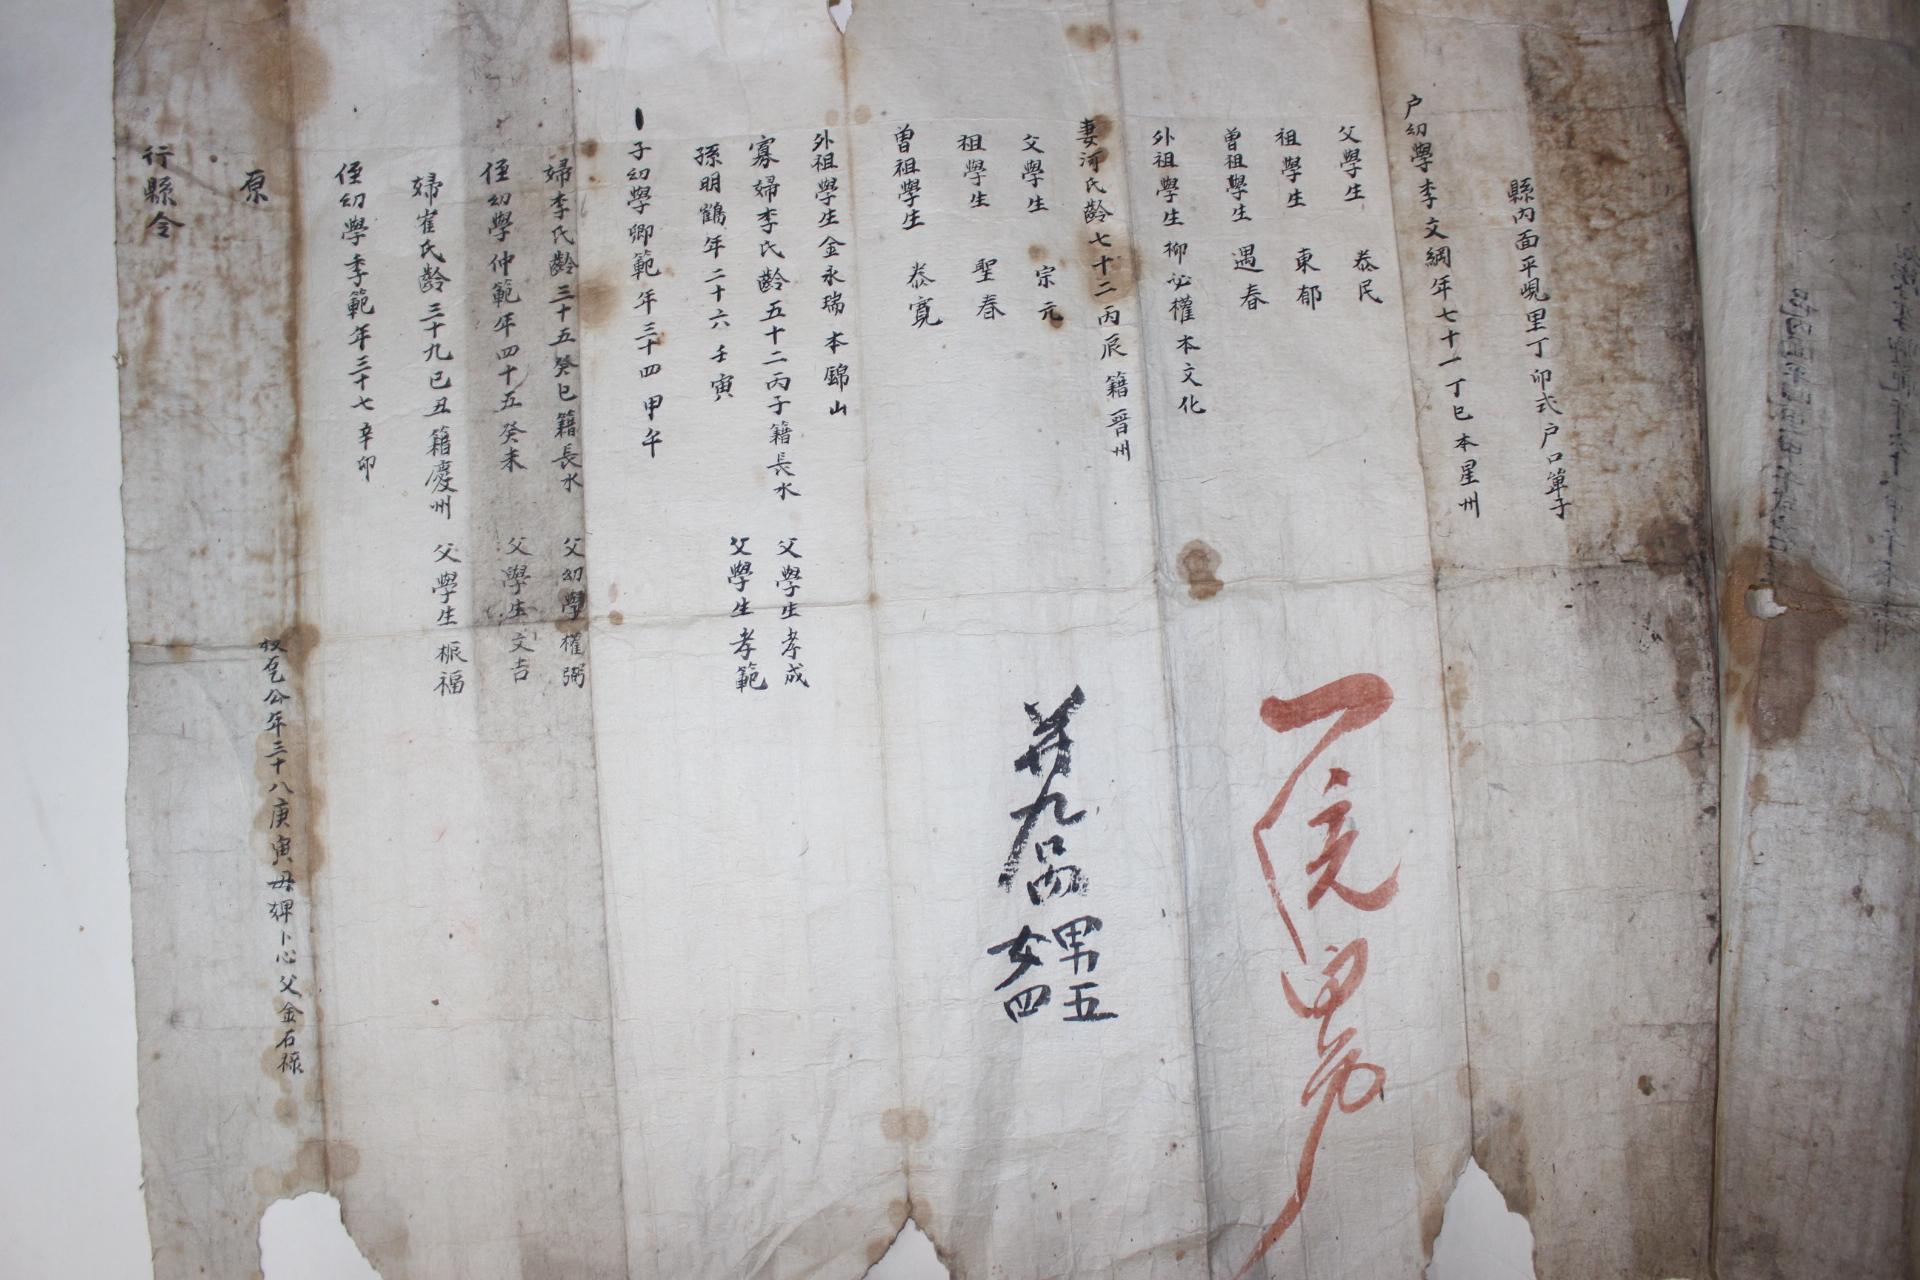 縣內面平峴里丁卯式户口單子
户幼學李文綱年七十一丁巳本星州
父學生 泰民
祖學生 東郁
曽祖學生 遇春
外祖學生柳必權本文化
妻河氏齡七十二丙辰籍晉州
父學生 宗元
祖學生 聖春
曽祖學生 泰寬
外祖學生金永瑞本錦山
寡婦李氏齡五十二丙子籍長水 父學生孝成
孫明鶴年二十六壬寅 父學生孝範
子幼學卿範年三十四甲午
婦李氏齡三十五癸巳籍長水 父幼學權弼
侄幼學仲範年四十五癸未 父學生文吉
婦崔氏齡三十九己丑籍慶州 父學生振福
侄幼學季範年三十七辛卯
年三十八庚寅母婢卜心父金石祿
原
行縣令
九口
男五
女四